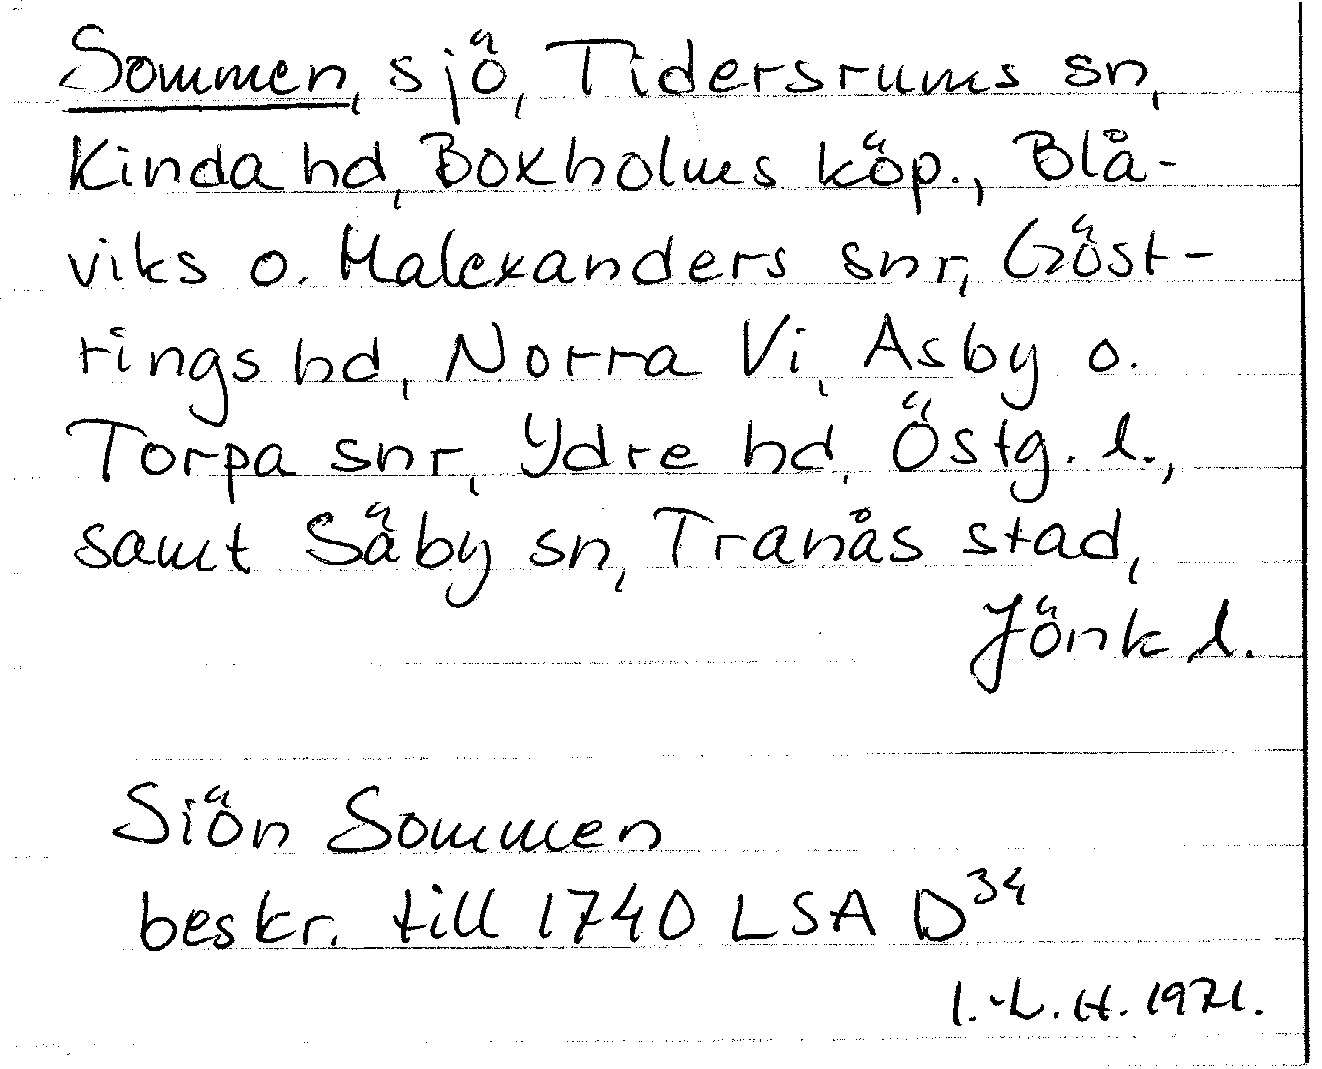 Sommen, sjö, Tidersrums sn,
Kinda hd, Boxholms köp., Blå-
viks o. Malexanders snr, Göst-
rings hd, Norra Vi, Asby o.
Torpa snr, Ydre hd, Östg. l.,
samt Säby sn, Tranås stad,
Jönk l.
Siön Sommen
beskr. till 1740 LSA D34
I.-L. H. 1971.